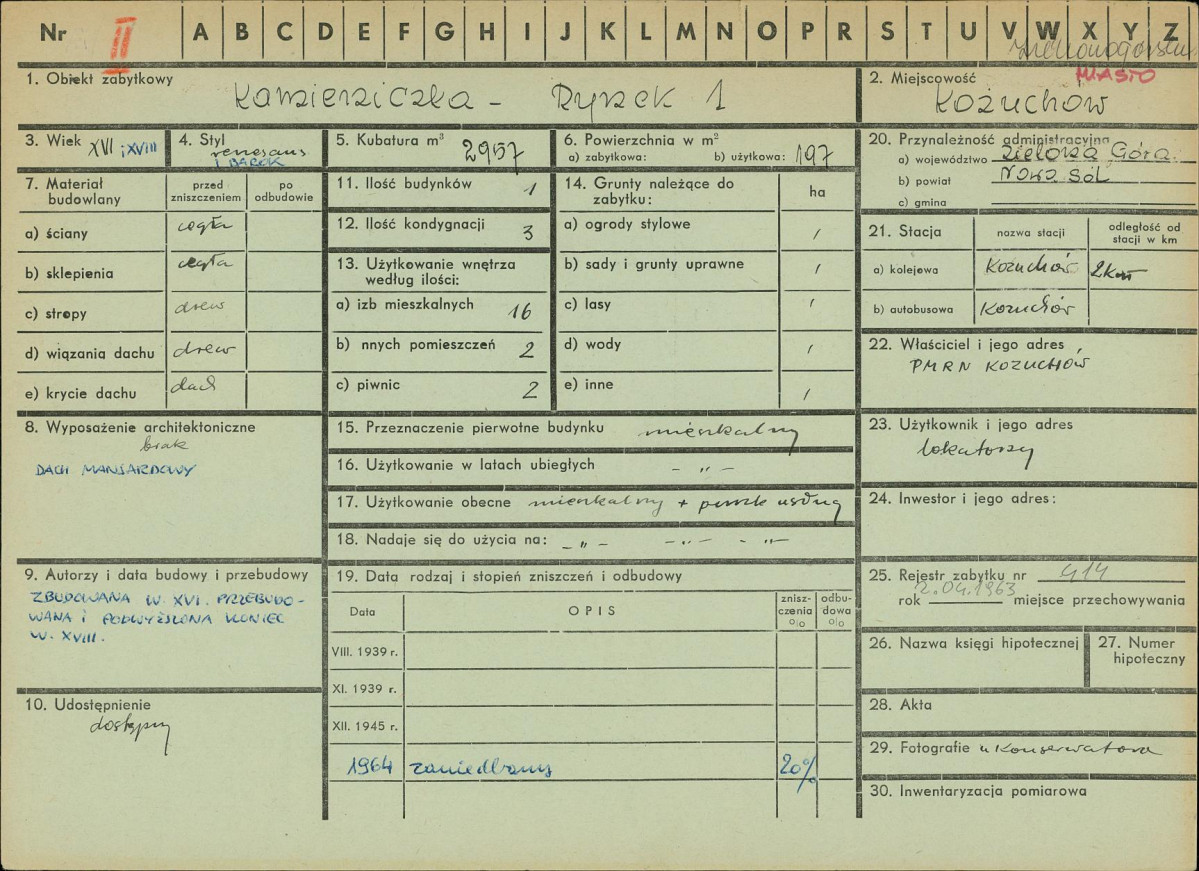 Nr II A B C D E F G H I J K L M N O P R S T U V W X Y Z
MIASTO
1. Obiekt zabytkowy
Kamieniczka - Rynek 1
2. Miejscowość
Kożuchów
3. Wiek XVI i XVIII
4. Styl renesans
i BAROK
5. Kubatura m³ 2957
6. Powierzchnia w m²
a) zabytkowa: b) użytkowa: 197
20. Przynależność administracyjna
a) województwo Zielona Góra
b) powiat Nowa Sól
c) gmina
7. Materiał budowlany
przed zniszczeniem
po odbudowie
a) ściany cegła
b) sklepienia cegła
c) stropy drew
d) wiązania dachu drew
e) krycie dachu dach
11. Ilość budynków 1
12. Ilość kondygnacji 3
13. Użytkowanie wnętrza
według ilości:
a) izb mieszkalnych 16
b) nnych pomieszczeń 2
c) piwnic 2
14. Grunty należące do
zabytku:
ha
a) ogrody stylowe /
b) sady i grunty uprawne /
c) lasy /
d) wody /
e) inne /
21. Stacja
nazwa stacji
odległość od
stacji w km
a) kolejowa Kożuchów 2 km
b) autobusowa Kożuchów
22. Właściciel i jego adres
PMRN KOŻUCHÓW
8. Wyposażenie architektoniczne
brak
DACH MANSARDOWY
15. Przeznaczenie pierwotne budynku mieszkalny
16. Użytkowanie w latach ubiegłych - " -
17. Użytkowanie obecne mieszkalny + punkt usług
18. Nadaje się do użycia na: - " - - " - - " -
23. Użytkownik i jego adres
lokatorzy
24. Inwestor i jego adres:
9. Autorzy i data budowy i przebudowy
ZBUDOWANA W. XVI. PRZEBUDO-
WANA I PODWYŻSZONA KONIEC
W. XVIII.
19. Data rodzaj i stopień zniszczeń i odbudowy
Data
OPIS
znisz-
czenia
%
odbu-
dowa
%
VIII. 1939 r.
XI. 1939 r.
XII. 1945 r.
1964 zaniedbany 20%
25. Rejestr zabytku nr 414
2.04.1963
rok miejsce przechowywania
26. Nazwa księgi hipotecznej
27. Numer
hipoteczny
10. Udostępnienie
dostępny
28. Akta
29. Fotografie u Konserwatora
30. Inwentaryzacja pomiarowa